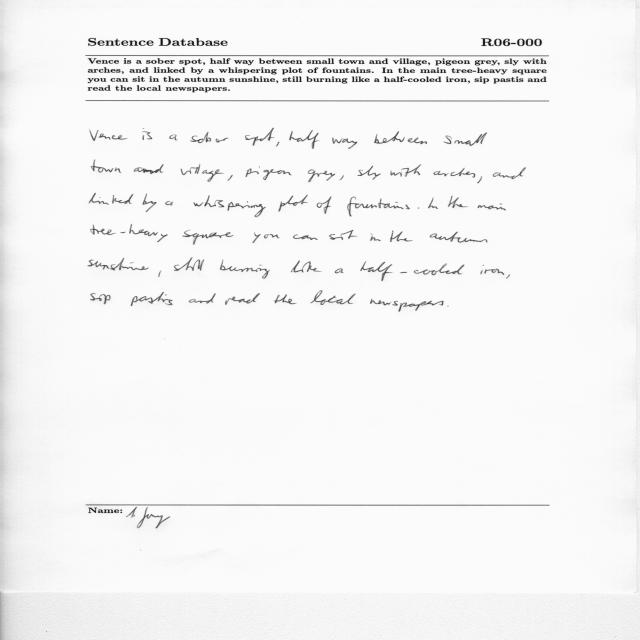 Sentence Database R06-000
Vence is a sober spot, half way between small town and village, pigeon grey, sly with
arches, and linked by a whispering plot of fountains. In the main tree-heavy square
you can sit in the autumn sunshine, still burning like a half-cooled iron, sip pastis and
read the local newspapers.
Vence is a sober spot, half way between small
town and village, pigeon grey, sly with arches, and
linked by a whispering plot of fountains. In the main
tree-heavy square you can sit in the autumn
sunshine, still burning like a half-cooled iron,
sip pastis and read the local newspapers.
Name: